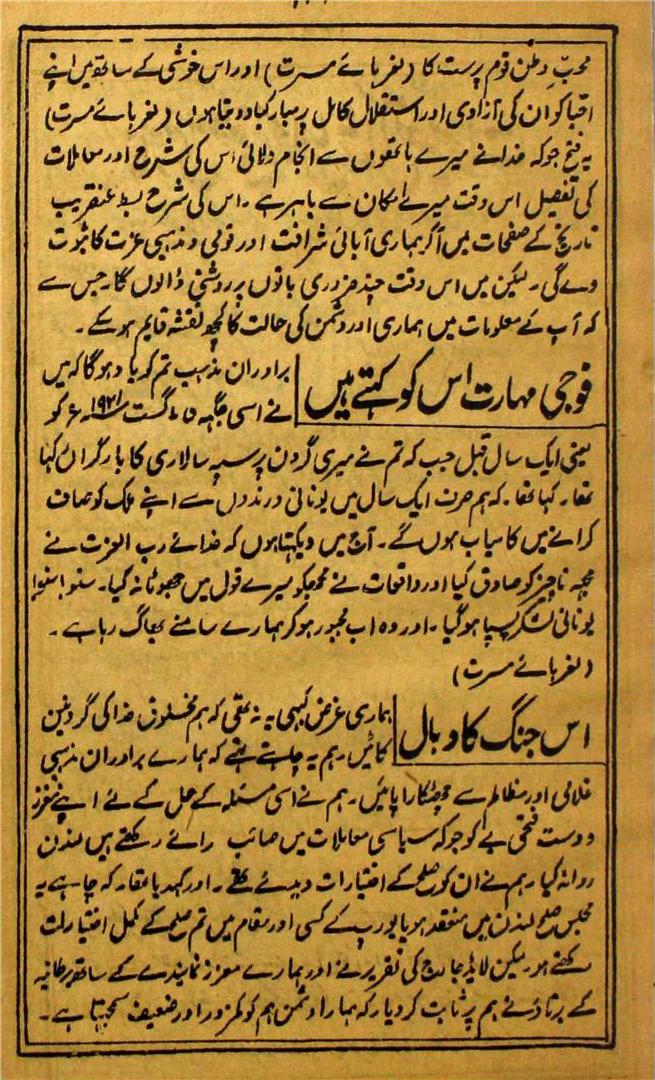 محبِّ وطن قوم پرست کا (نعرہائے مسرت) اور اس خوشی کے ساتھ میں اپنے
احبا کو ان کی آزادی اور استقلال کامل پر مبارکباد دیتا ہوں (نعرہائے مسرت)
یہ فتح جو کہ خدا نے میرے ہاتھوں سے انجام دلائی اس کی شرح اور معاملات
کی تفصیل اس وقت میرے امکان سے باہر ہے ۔ اس کی شرح بسط عنقریب
تاریخ کے صفحات میں آکر ہماری آبائی شرافت اور قومی و مذہبی عزت کا ثبوت
دے گی ۔ لیکن میں اس وقت چند ضروری باتوں پر روشنی ڈالوں گا ۔ جس سے
کہ آپ کے معلومات میں ہماری اور دشمن کی حالت کا کچھ نقشہ قایم ہو سکے ۔
فوجی مہارت اس کو کہتے ہیں
برادران مذہب تم کو یاد ہوگا کہ میں
نے اسی جگہ ۵ اگست ۱۹۲۱ء کو
یعنی ایک سال قبل جب کہ تم نے میری گردن پر سپہ سالاری کا بار گراں رکھا
تھا ۔ کہا تھا ۔ کہ ہم صرف ایک سال میں یونانی درندوں سے اپنے ملک کو صاف
کرانے میں کامیاب ہوں گے ۔ آج میں دیکھتا ہوں کہ خدائے رب العزت نے
مجھ ناچیز کو صادق کیا اور واقعات نے مجھکو میرے قول میں جھوٹا نہ کیا ۔ سنو! سنو!
یونانی لشکر پسپا ہو گیا ۔ اور وہ اب مجبور ہو کر ہمارے سامنے بھاگ رہا ہے ۔
(نعرہائے مسرت)
اس جنگ کا وبال
ہماری غرض کبھی یہ نہ تھی کہ ہم مخلوق خدا کی گردنیں
کاٹیں ۔ ہم یہ چاہتے تھے کہ ہمارے برادران مذہبی
غلامی اور مظالم سے چھٹکارا پائیں ۔ ہم نے اسی مسئلہ کے حل کے لئے اپنے معزز
دوست فتحی بے کو جو کہ سیاسی معاملات میں صائب رائے رکھتے ہیں لندن
روانہ کیا ۔ ہم نے ان کو صلح کے اختیارات دیئے تھے ۔ اور کہدیا تھا ۔ کہ چاہے یہ
مجلس صلح لندن میں منعقد ہو یا یورپ کے کسی اور مقام میں تم صلح کے مکمل اختیارات
رکھتے ہو ۔ لیکن لائیڈ جارج کی تقریر نے اور ہمارے معزز نمایندے کے ساتھ برطانیہ
کے برتاؤ نے ہم پر ثابت کر دیا ۔ کہ ہمارا دشمن ہم کو کمزور اور ضعیف سمجھتا ہے ۔